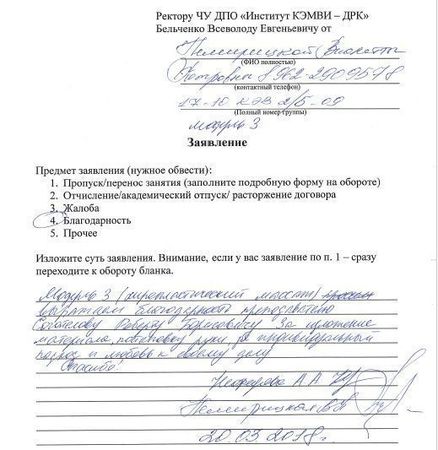 Ректору ЧУ ДПО «Институт КЭМВИ – ДРК»
Бельченко Всеволоду Евгеньевичу от
Немирицкой Виолетты
(ФИО полностью)
Петровны 8962-2909578
(контактный телефон)
17-10 КЭВ 2/5-09
(Полный номер группы)
модуль 3
Заявление
Предмет заявления (нужное обвести):
1. Пропуск/перенос занятия (заполните подробную форму на обороте)
2. Отчисление/академический отпуск/ расторжение договора
3. Жалоба
4. Благодарность
5. Прочее
Изложите суть заявления. Внимание, если у вас заявление по п. 1 – сразу
переходите к обороту бланка.
Модуль 3 (хиропластический массаж)
выражаем благодарность преподавателю
Роберту Борисовичу за изложение
материала, постановку руки, за индивидуальный
подход и любовь к своему делу
Спасибо!
А А
Немирицкая В П
20.03.2018г.